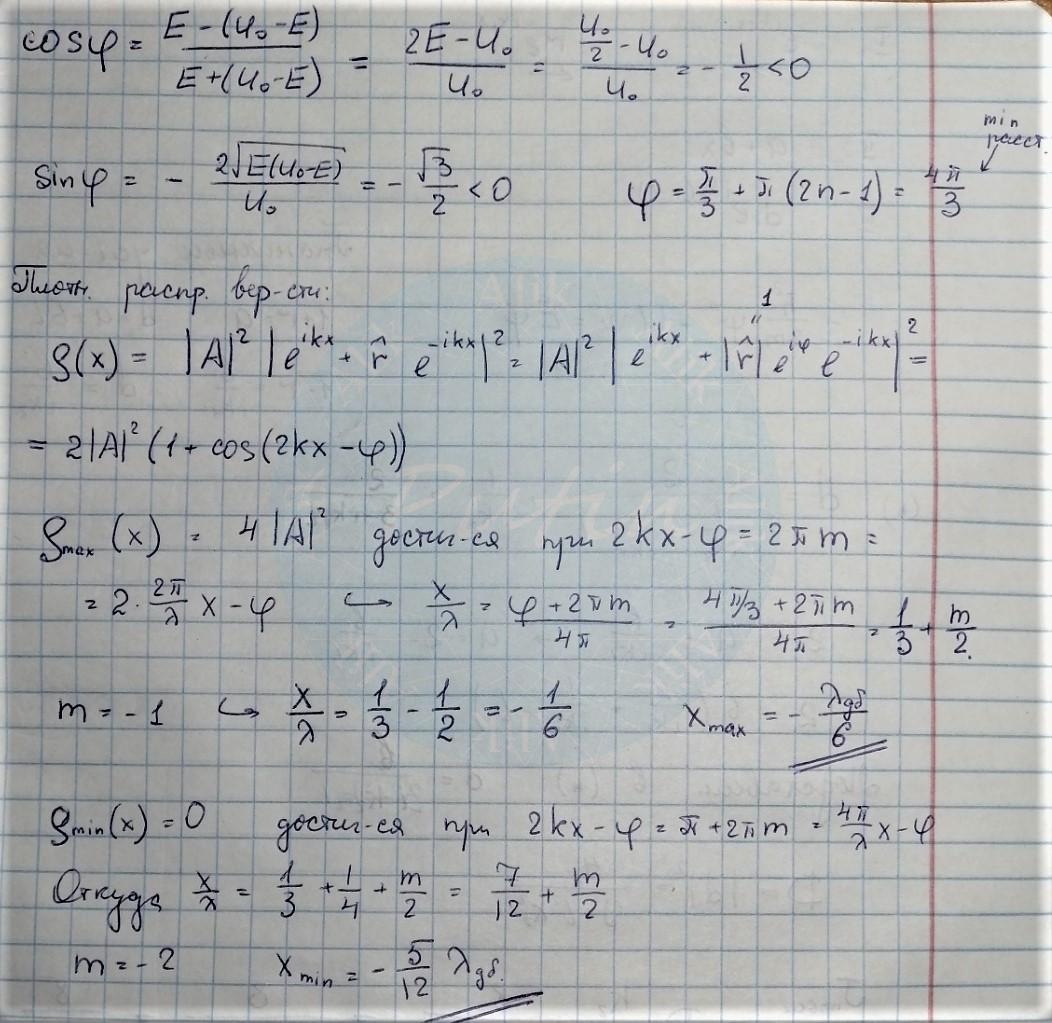 cosφ = (E - (U₀ - E))/(E + (U₀ - E)) = (2E - U₀)/U₀ = (U₀/2 - U₀)/U₀ = - 1/2 < 0
min расст.
sinφ = - 2√(E(U₀-E))/U₀ = - √3/2 < 0 φ = π/3 + π(2n-1) = 4π/3
Плотн. распр. вер-сти:
1
ρ(x) = |A|² |e^{ikx} + r̂ e^{-ikx}|² = |A|² |e^{ikx} + |r̂| e^{iφ} e^{-ikx}|² =
= 2|A|² (1 + cos(2kx - φ))
ρmax(x) = 4|A|² достиг-ся при 2kx - φ = 2πm =
= 2 · 2π/λ x - φ ↪ x/λ = (φ + 2πm)/4π = (4π/3 + 2πm)/4π = 1/3 + m/2.
m = - 1 ↪ x/λ = 1/3 - 1/2 = - 1/6 xmax = - λдб/6
ρmin(x) = 0 достиг-ся при 2kx - φ = π + 2πm = 4π/λ x - φ
Откуда x/λ = 1/3 + 1/4 + m/2 = 7/12 + m/2
m = - 2 xmin = - 5/12 λдб.
Putin